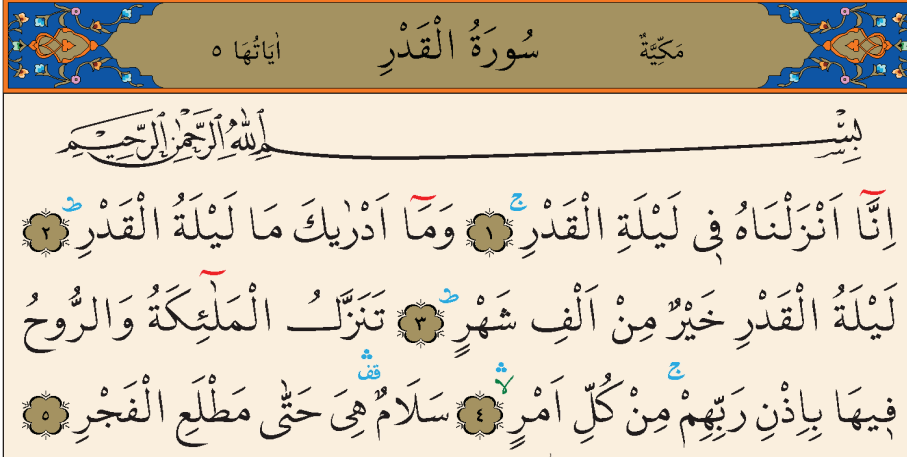 مَكِّيَّةٌ سُورَةُ الْقَدْرِ اٰيَاتُهَا ٥
بِسْمِ اللّٰهِ الرَّحْمٰنِ الرَّحِيمِ
اِنَّٓا اَنْزَلْنَاهُ فٖي لَيْلَةِ الْقَدْرِۚ ١ وَمَٓا اَدْرٰيكَ مَا لَيْلَةُ الْقَدْرِۜ ٢
لَيْلَةُ الْقَدْرِ خَيْرٌ مِنْ اَلْفِ شَهْرٍۜ ٣ تَنَزَّلُ الْمَلٰٓئِكَةُ وَالرُّوحُ
فٖيهَا بِاِذْنِ رَبِّهِمْۚ مِنْ كُلِّ اَمْرٍۙۛ ٤ سَلَامٌ۠ۛ هِيَ حَتّٰى مَطْلَعِ الْفَجْرِ ٥